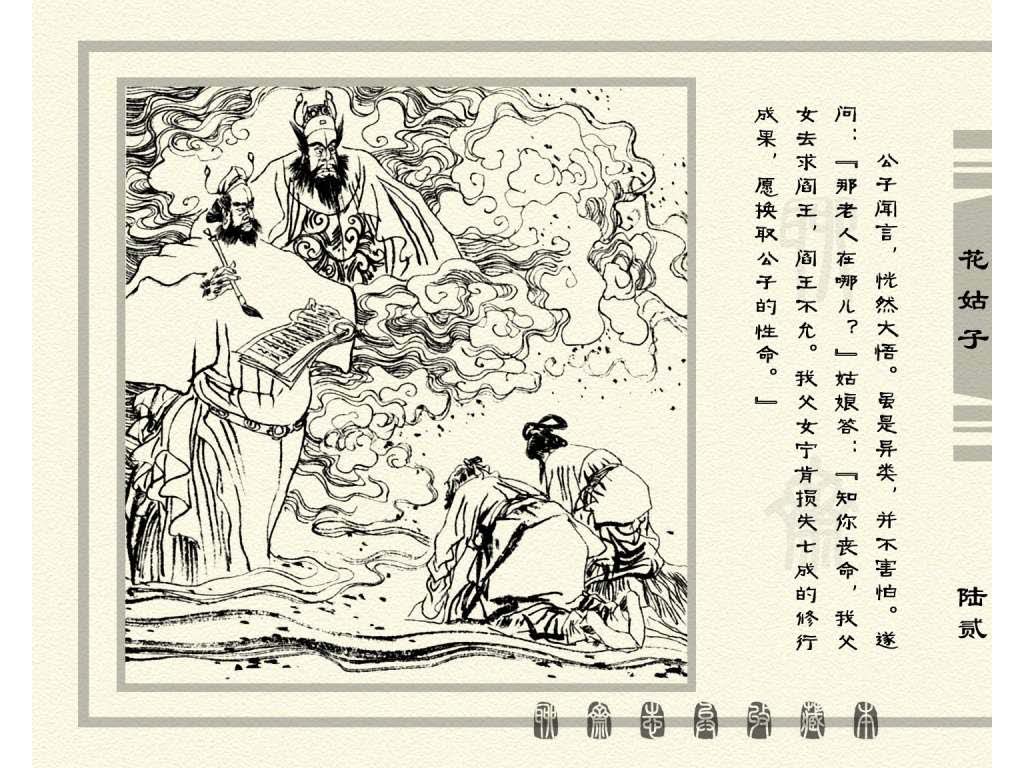 花姑子
陆贰
公子闻言，恍然大悟。虽是异类，并不害怕。遂
问：『那老人在哪儿？』姑娘答：『知你丧命，我父
女去求阎王，阎王不允。我父女宁肯损失七成的修行
成果，愿换取公子的性命。』
聊斋志异收藏本